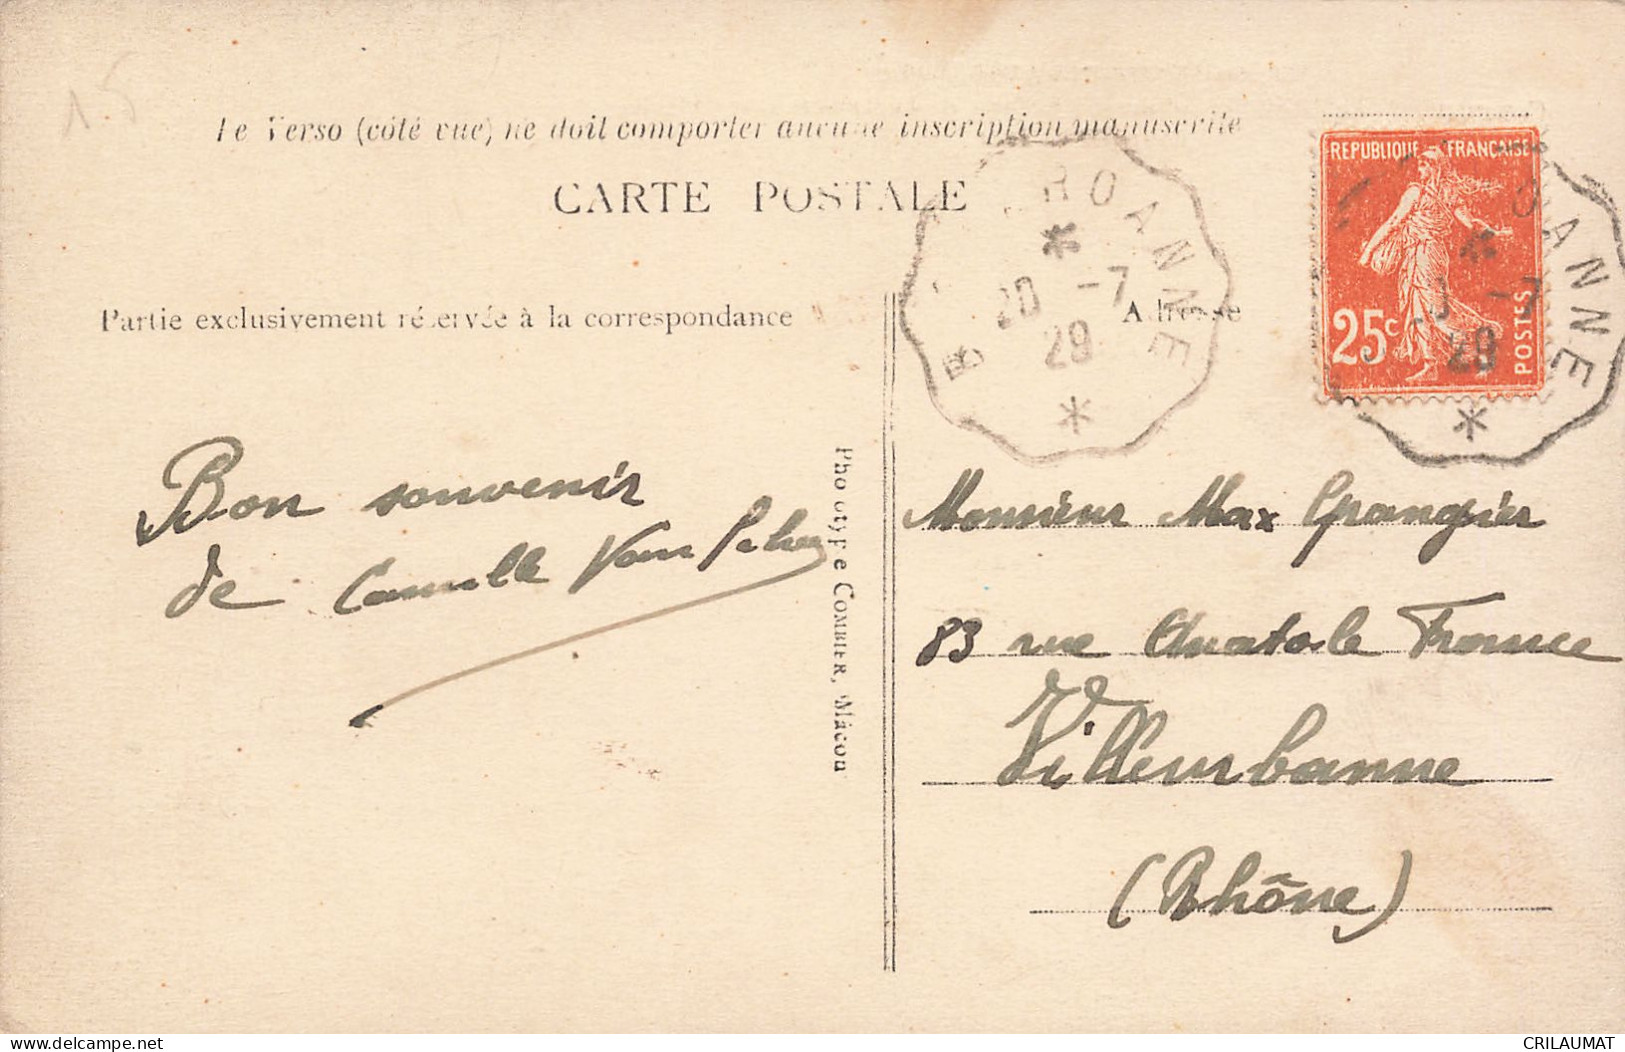 1.5
Le Verso (côté vue) ne doit comporter aucune inscription manuscrite
CARTE POSTALE
REPUBLIQUE FRANÇAISE
25c
POSTES
ROANNE
20 -7
29
ROANNE
-7
29
Partie exclusivement réservée à la correspondance
Adresse
Bon souvenir
de Camille
Phototype COMBIER, Mâcon
Monsieur Max Grangier
83 rue Anatole France
Villeurbanne
(Rhône)
delcampe.net
CRILAUMAT